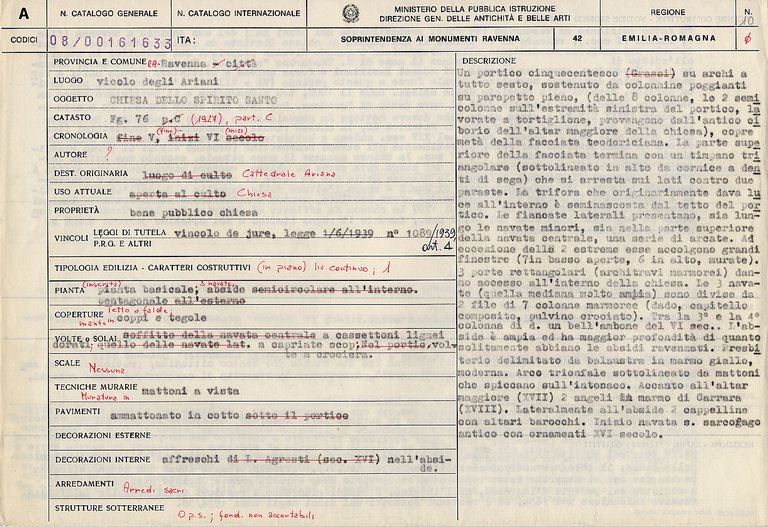 A
N. CATALOGO GENERALE
N. CATALOGO INTERNAZIONALE
MINISTERO DELLA PUBBLICA ISTRUZIONE
DIREZIONE GEN. DELLE ANTICHITÀ E BELLE ARTI
REGIONE
N.
10
CODICI
08/00161633
ITA:
SOPRINTENDENZA AI MONUMENTI RAVENNA
42
EMILIA-ROMAGNA
PROVINCIA E COMUNE: RA-Ravenna - città
LUOGO vicolo degli Ariani
OGGETTO CHIESA DELLO SPIRITO SANTO
CATASTO Fg. 76 p.C (1927), part. C
CRONOLOGIA fine V, (fine)- inizi VI (inizi) secolo
AUTORE ?
DEST. ORIGINARIA luogo di culto Cattedrale Ariana
USO ATTUALE aperta al culto Chiesa
PROPRIETÀ bene pubblico chiesa
VINCOLI LEGGI DI TUTELA vincolo de jure, legge 1/6/1939 n° 1089/1939
P.R.G. E ALTRI art. 4
TIPOLOGIA EDILIZIA - CARATTERI COSTRUTTIVI (in piano) liv. continuo; 1
(inscritto) 3 navate,
PIANTA pianta basicale, abside semioircolare all'interno.
pentagonale all'esterno
COPERTURE Tetto a falde;
manto in coppi e tegole
VOLTE o SOLAI soffitto della navata centrale a cassettoni lignei
dorati; quello delle navate lat. a capriate scop; Nel portic, vol-
te a crociera.
SCALE Nessuna
TECNICHE MURARIE mattoni a vista
Muratura in
PAVIMENTI ammattonato in cotto sotto il portico
DECORAZIONI ESTERNE
DECORAZIONI INTERNE affreschi di L. Agresti (sec. XVI) nell'absi-
de.
ARREDAMENTI Arredi sacri
STRUTTURE SOTTERRANEE O.p.s.; fond. non accertabili
DESCRIZIONE
Un portico cinquecentesco (Grassi) su archi a
tutto sesto, sostenuto da colonnine poggianti
su parapetto pieno, (delle 8 colonne, le 2 semi
colonne sull'estremità sinistra del portico, la
vorate a tortiglione, provengono dall'antico ci
borio dell'altar maggiore della chiesa), copre
metà della facciata teodoriciana. La parte supe
riore della facciata termina con un timpano tri
angolare (sottolineato in alto da cornice a den
ti di sega) che si arresta sui lati contro due
paraste. La trifora che originariamente dava lu
ce all'interno è seminascosta dal tetto del por
tico. Le fiancate laterali presentano, sia lun-
go le navate minori, sia nella parte superiore
della navata centrale, una serie di arcate. Ad
eccezione delle 2 estreme esse accolgono grandi
finestre (7in basso aperte, 6 in alto, murate).
3 porte rettangolari (architravi marmorei) dan-
no accesso all'interno della chiesa. Le 3 nava-
te (quella mediana molto ampia) sono divise da
2 file di 7 colonne marmoree (dado, capitello
composito, pulvino crociato). Tra la 3ª e la 4ª
colonna di d. un bell'ambone del VI sec.. L'ab-
side è ampia ed ha maggior profondità di quanto
solitamente abbiano le absidi ravennati. Presbi
terio delimitato da balaustra in marmo giallo,
moderna. Arco trionfale sottolineato da mattoni
che spiccano sull'intonaco. Accanto all'altar
maggiore (XVII) 2 angeli in marmo di Carrara
(XVIII). Lateralmente all'abside 2 cappelline
con altari barocchi. Inizio navata s. sarcofago
antico con ornamenti XVI secolo.